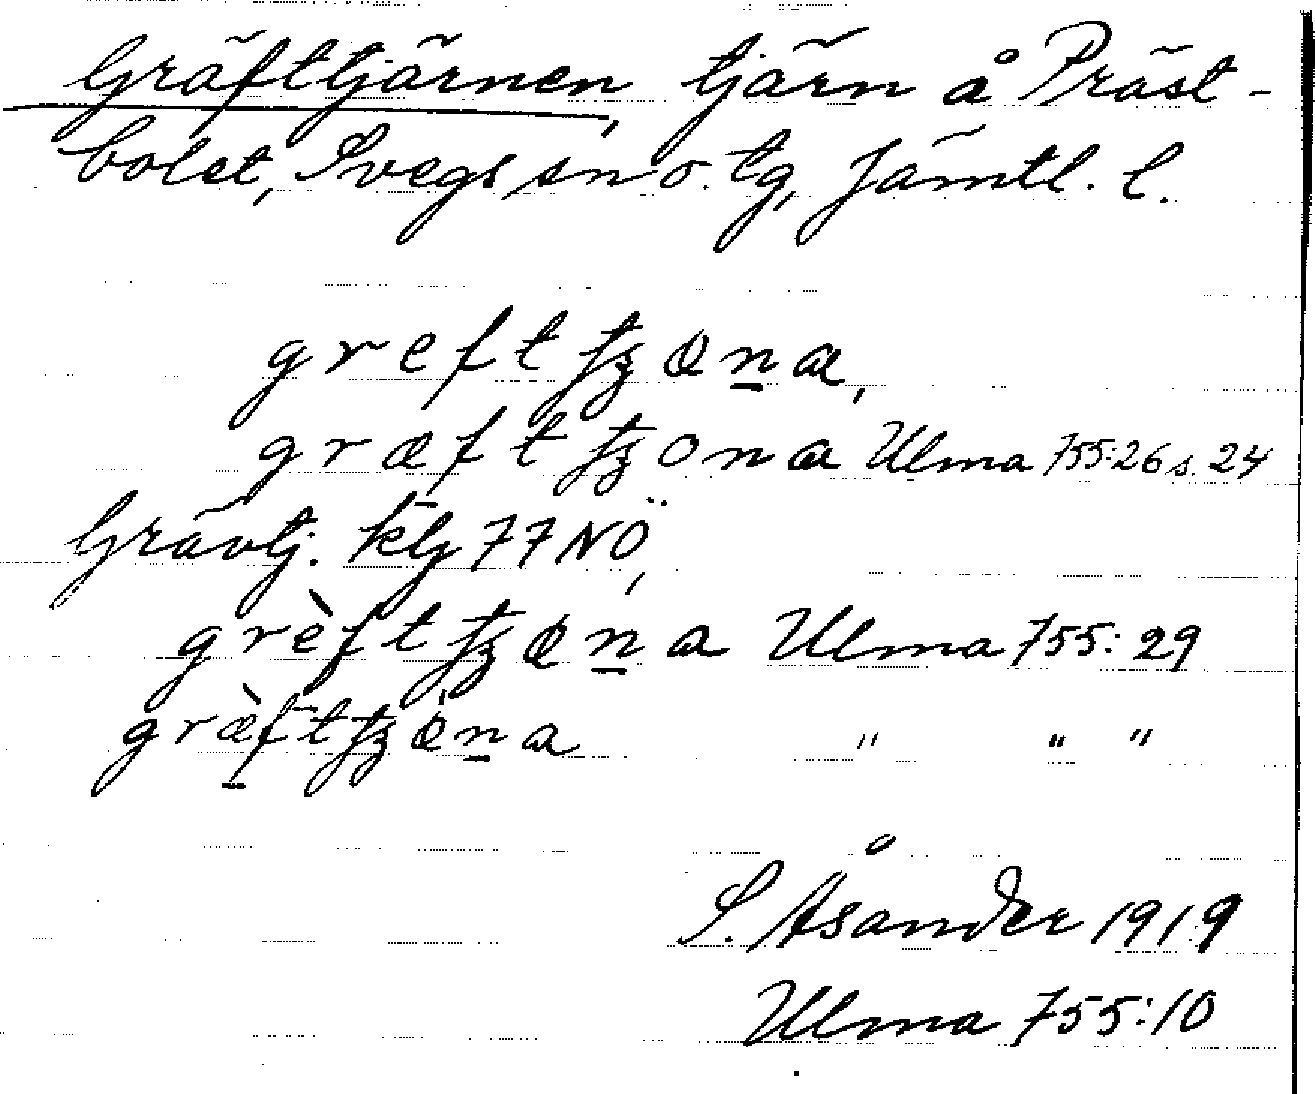 Gräftjärnen, tjärn å Präst-
bolet, Svegs sn o. tg, Jämtl. l.
greftʃʒøna,
græftʃʒona Ulma 755:26 s. 24
Grävtj. kbl 77 NÖ,
grèftʃʒøna Ulma 755:29
græ̀ftʃʒøna " " "
S. Åsander 1919
Ulma 755:10